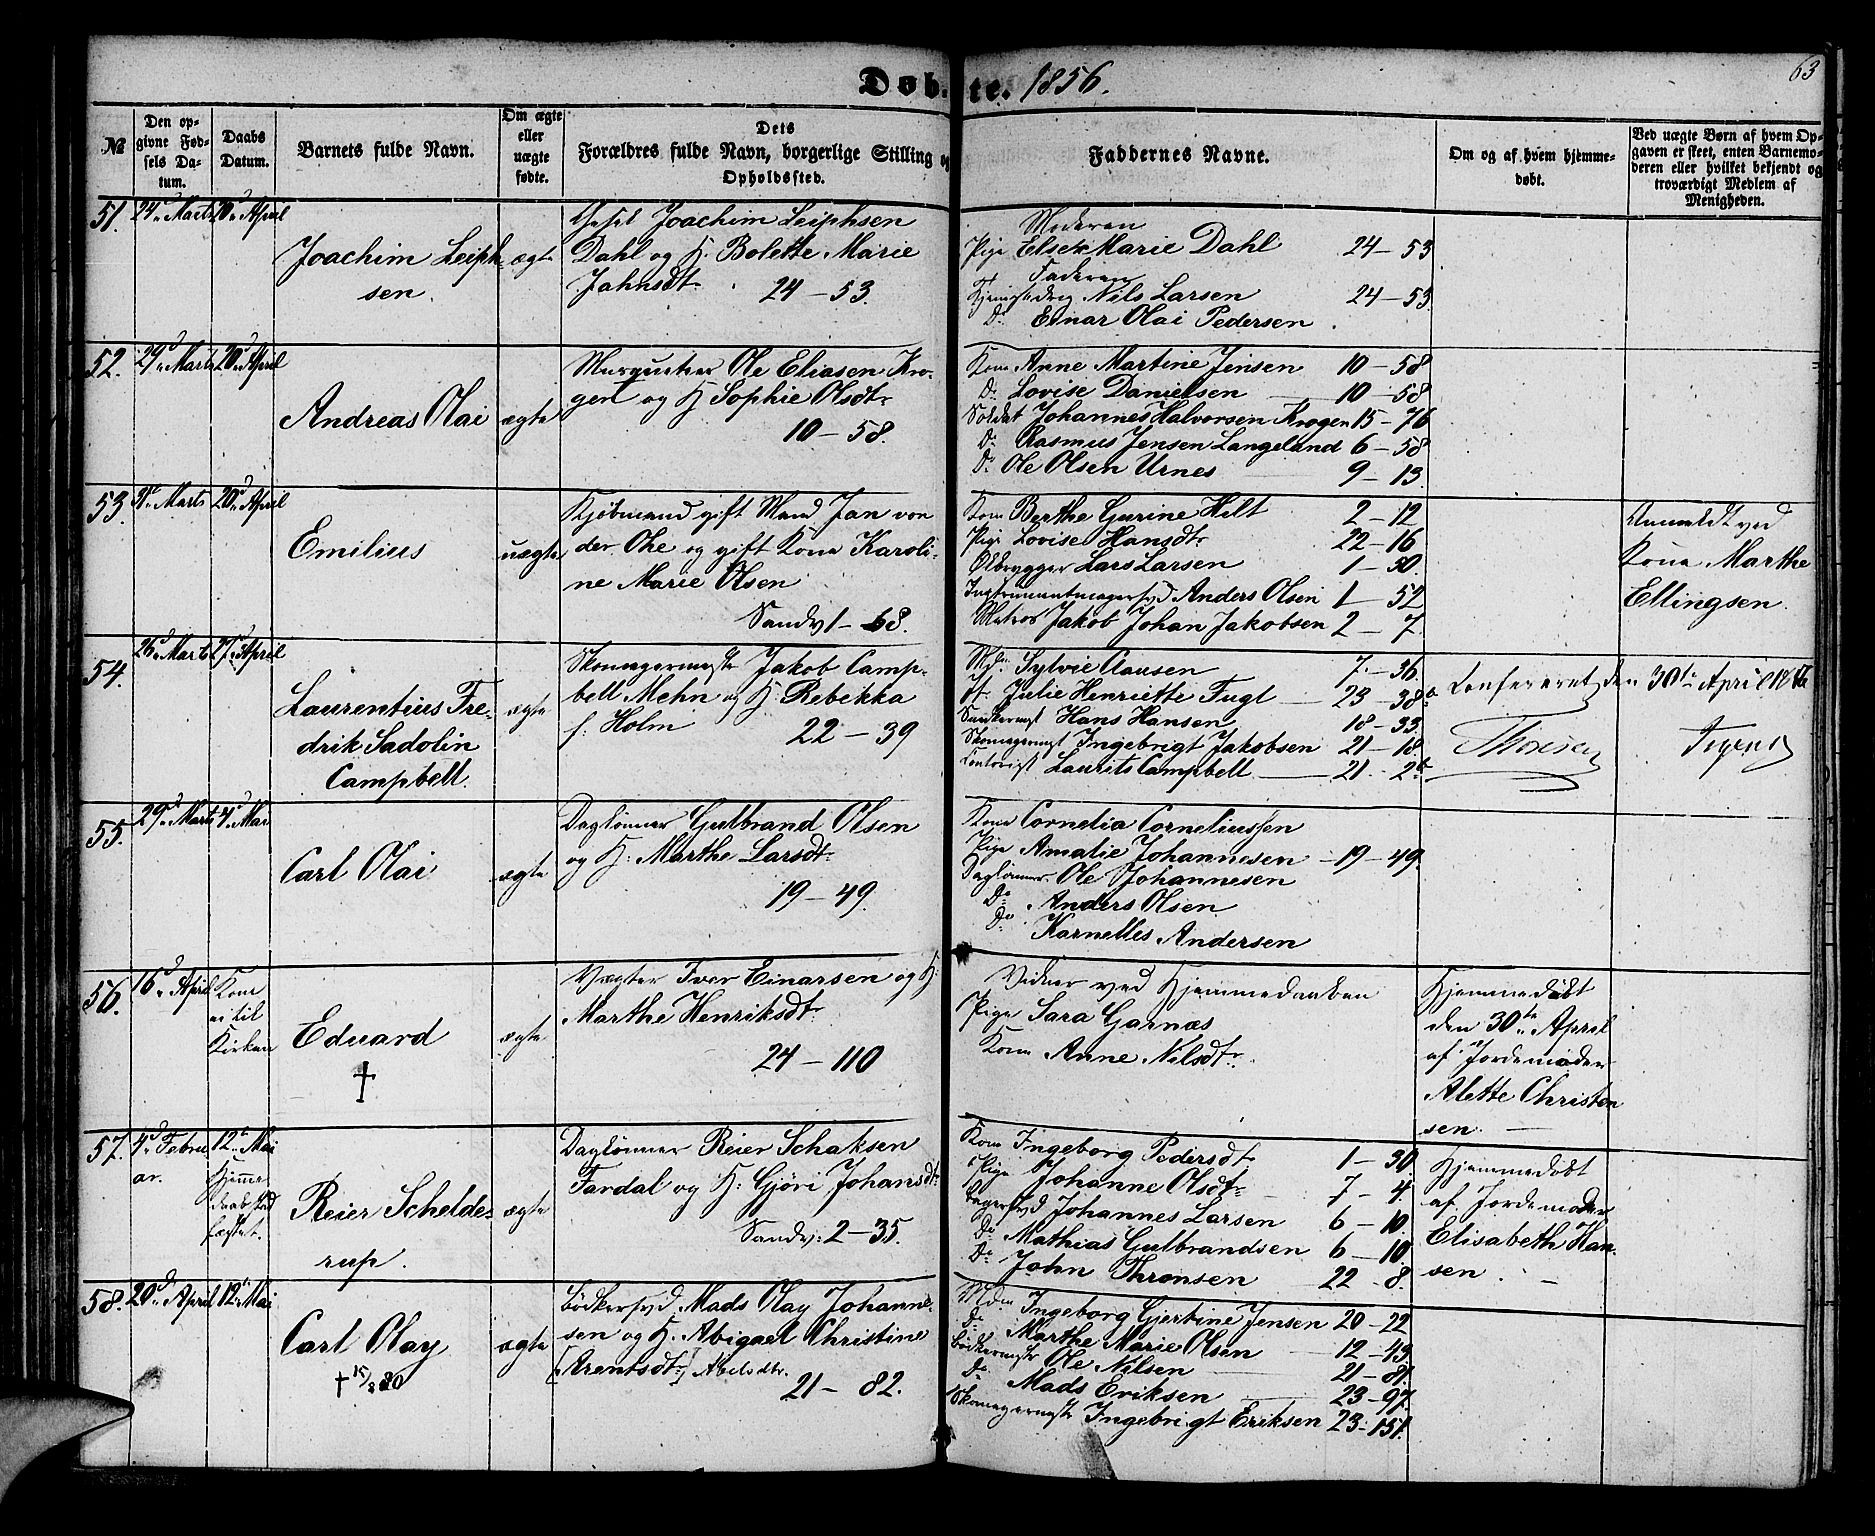 Døb- te. 1856.
63
№
Den opgivne Fødsels Datum.
Daabs Datum.
Barnets fulde Navn.
Om ægte eller uægte fødte.
Dets Forældres fulde Navn, borgerlige Stilling og Opholdssted.
Faddernes Navne.
Om og af hvem hjemmedøbt.
Ved uægte Børn af hvem Opgaven er skeet, enten Barnemoderen eller hvilket bekjendt og troværdigt Medlem af Menigheden.
51. 24d Marts 20d April
Joachim Leiph-
sen.
ægte
Joachim Leiphsen
Dahl og H. Bolette Marie
Jahnsdtr.
24 — 53.
Moderen
Pige Else Marie Dahl 24 — 53
Faderen
Nils Larsen 24 — 53.
Do Einar Olai Pedersen.
52. 29d Marts 20d April
Andreas Olai
ægte
Murquster Ole Eliasen Kro-
gen og H Sophie Olsdtr
10 — 58.
Kone Anne Martine Jensen 10 — 58
Do Lovise Danielsen 10 — 58
Soldat Johannes Halvorsen Krogen 15 — 76
Do Rasmus Jensen Langeland 6 — 58
Do Ole Olsen Urnes 9 — 13.
53. Marts 20d April
Emilius
uægte
Kjøbmand gift Mand Jan von
der Ohe og gift Kone Karoli-
ne Marie Olsen
Sandv 1 — 68.
Kone Berthe Gurine Hilt 2 — 12
Pige Lovise Hansdtr 22 — 16
Ølbrygger Lars Larsen 1 — 30.
Instrumentmagersvd Anders Olsen 1 — 52
Matros Jakob Johan Jakobsen 2 — 7.
Anmeldt ved
Kone Marthe
Ellingsen.
54. 26d Marts 27d April
Laurentius Fre-
drik Sadolin
Campbell.
ægte
Skomagermestr Jakob Camp-
bell Mehn og H Rebekka
f: Holm 22 — 39
Sylvie Clausen 7 — 36.
Julie Henriette Fugl 23 — 38a
Hans Hansen 18 — 33.
Skomagermst Ingebrigt Jakobsen 21 — 18
Laurits Campbell 21 — 2b
Confereret den 30te April
Thonsen
55. 29d Marts 4d Mai
Carl Olai
ægte
Dagløner Gulbrand Olsen
og H: Marthe Larsdtr
19 — 49.
Kone Cornelia Corneliussen
Pige Amalie Johannesen 19 — 49.
Dagløner Ole Johannesen
Do Anders Olsen
Do Karnelles Andersen
56. 16d April Kom
ei til
Kirken
Eduard
†
ægte
Vægter Iver Einarsen og H.
Marthe Henriksdtr
24 — 110
Vidner ved Hjemmedaaben
Pige Sara Garnæs
Kone Anne Nilsdtr.
Hjemmedøbt
den 30te April
af Jordemoder
Alette Christen
sen.
57. 4d Febru
ar.
12te Mai
Hjemme
daab stad
fæstet.
Reier Schelde-
rup.
ægte
Dagløner Reier Schaksen
Fardal og H: Gjøri Johansdtr
Sandv: 2 — 35.
Kone Ingeborg Pedersdtr 1 — 30
Pige Johanne Olsdtr 7 — 4.
Johannes Larsen 6 — 10.
Do Mathias Gulbrandsen 6 — 10.
Do John Thronsen 22 — 8.
Hjemmedøbt
af Jordemoder
Elisabeth Han-
sen.
58. 20d April 12te Mai
Carl Olay
† 15/8 80
ægte
Bødkersvd Mads Olay Johanne-
sen og H. Abigael Christine
[Arentsdtr] Abelsdtr.
21 — 82.
Mdm Ingeborg Gjertine Jensen 20 — 22
Do Marthe Marie Olsen 12 — 43.
Bødkermstr Ole Nilsen 21 — 81.
Do Mads Eriksen 23 — 97.
Skomagermstr Ingebrigt Eriksen 23 — 151.